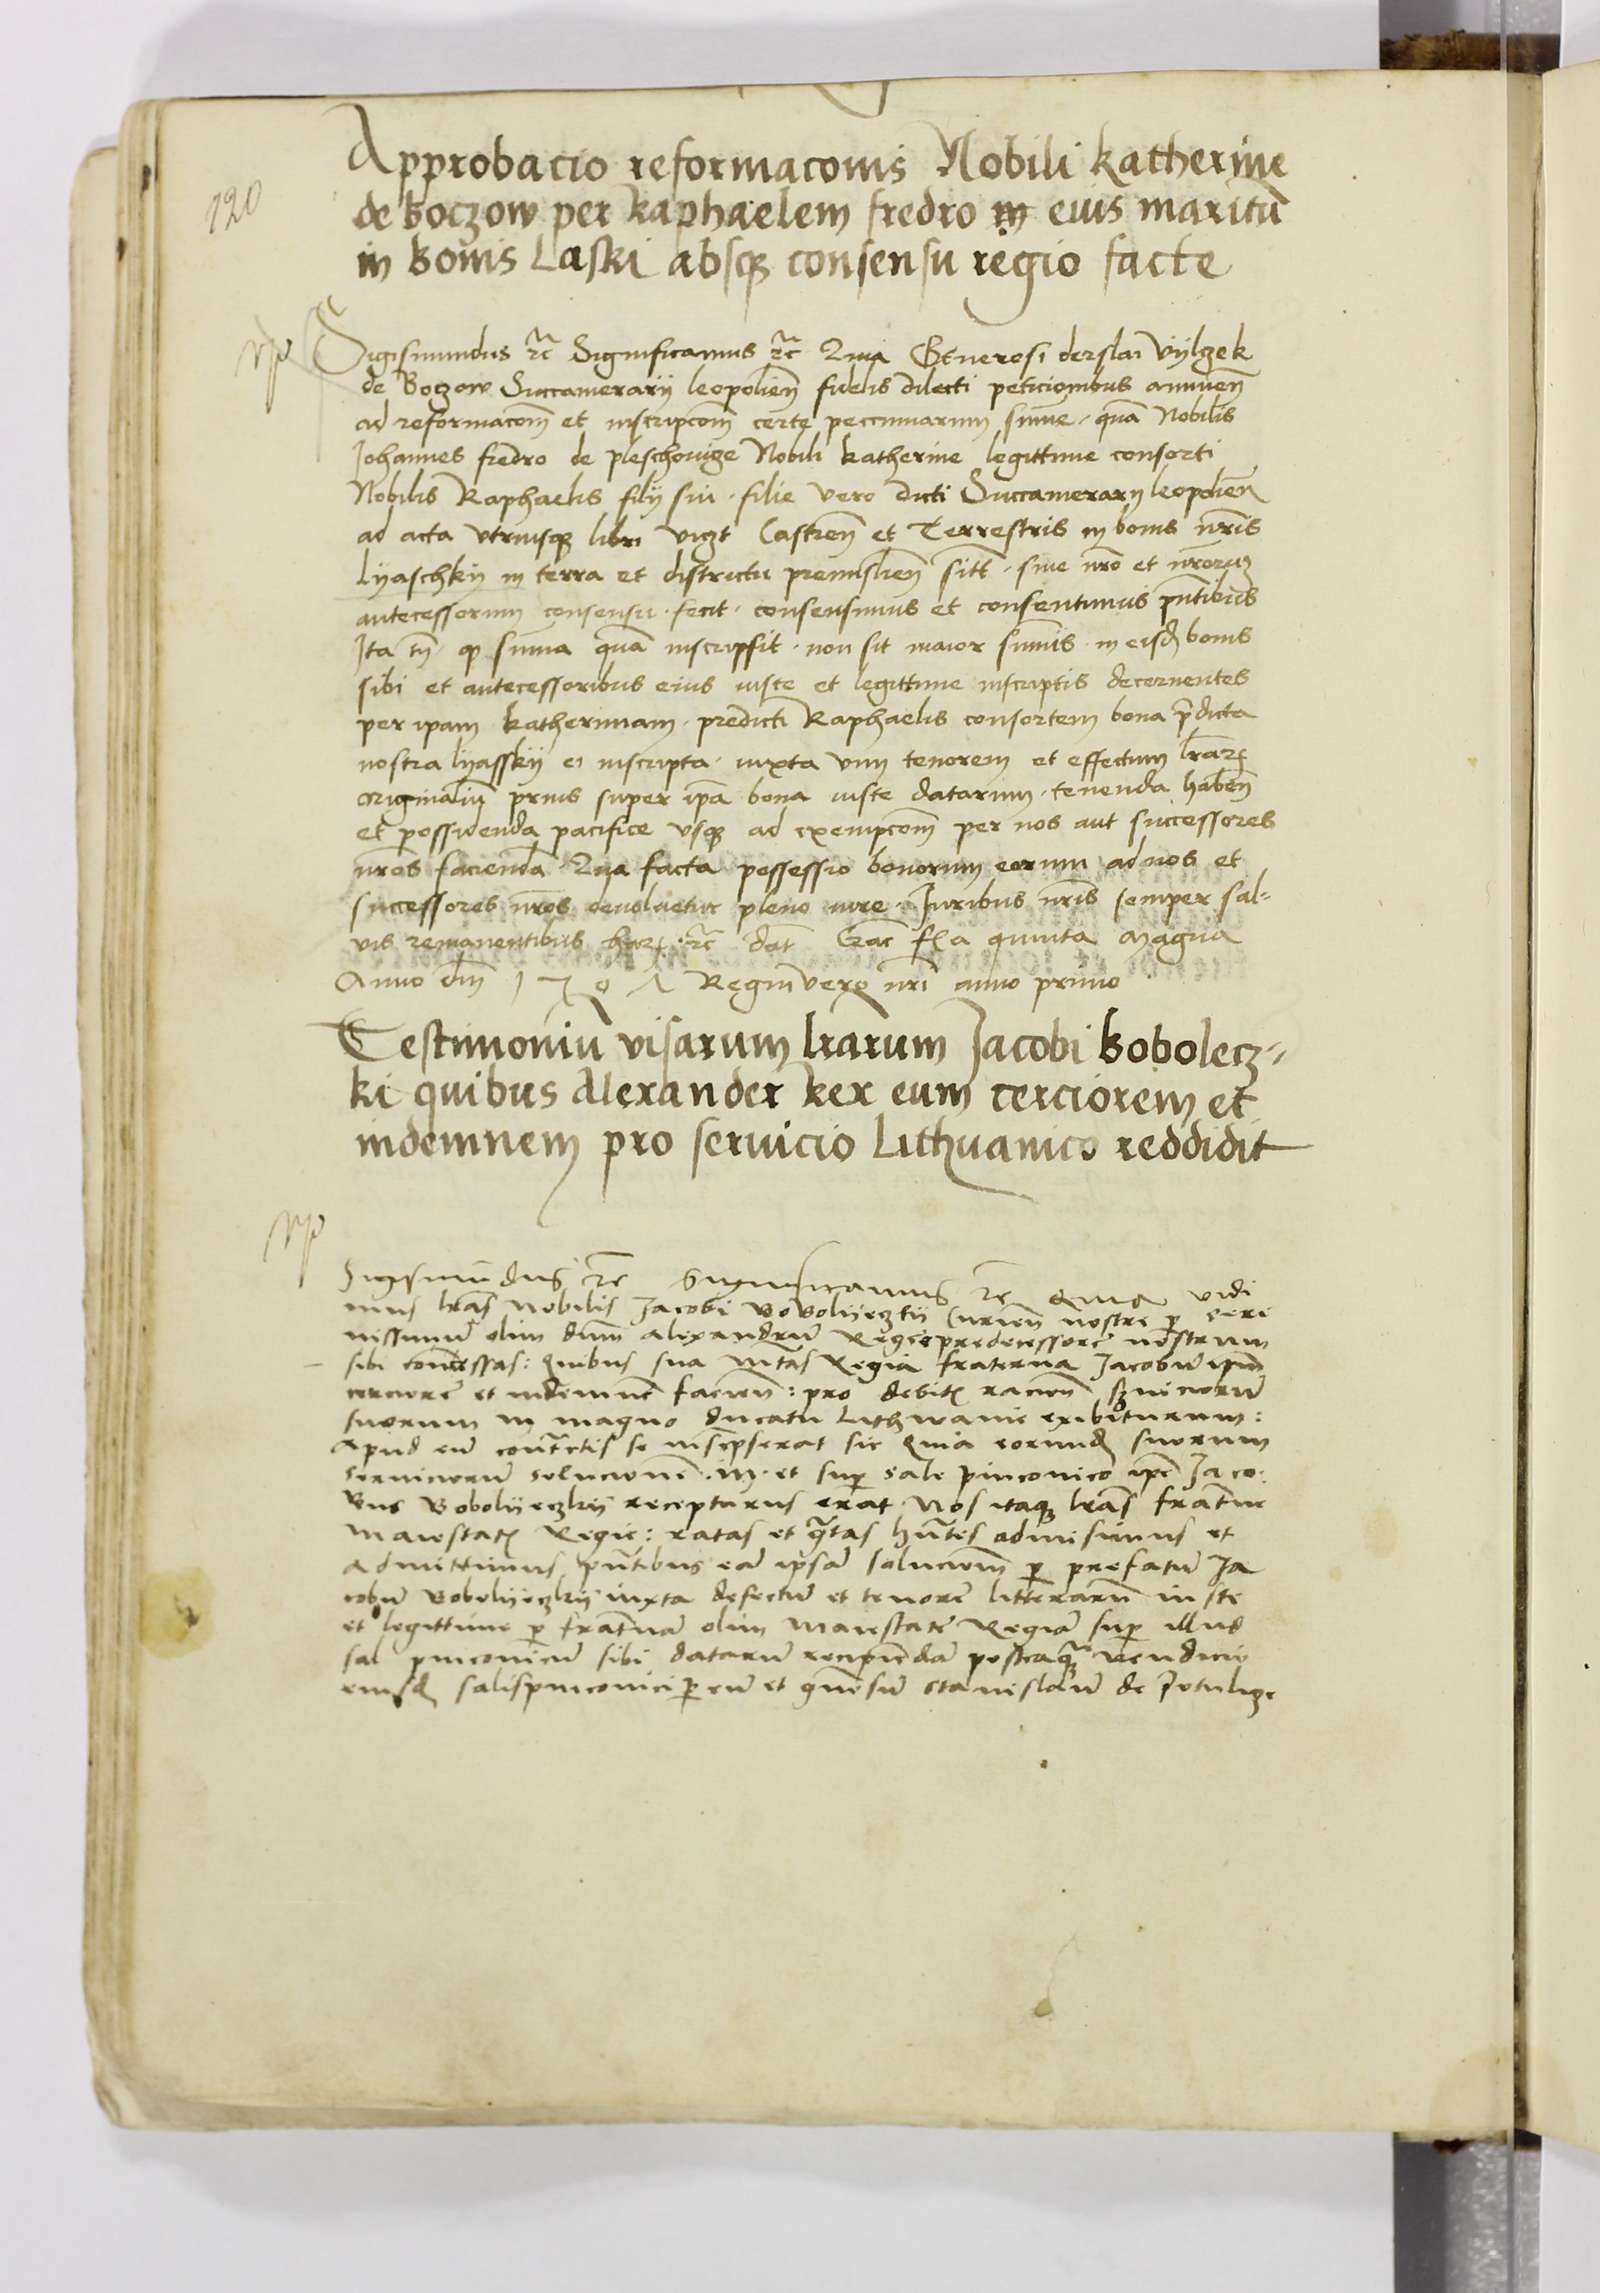 120
Approbacio reformaconis Nobili Katherine
de Boczow per Raphaelem fredro in eius maritū
in Bonis Laski absq consensu regio facte
Sigismundus rc Significamus rc Quia Generosi derslai Vylzek
de Boczow Succamerarij leopolien̄ fidelis dilecti peticionibus annuen̄
ad reformacom̄ et inscripcom̄ certe peccuniarum sum̄e · quā Nobilis
Johannes fredro de pleschowige Nobili Katherine legittime consorti
Nobilis Raphaelis filij sui · filie vero dicti Succamerarij leopolien̄
ad acta vtriusq libri vizt Castren̄ et Terrestris in bonis nr̄is
Lyaschky in terra et districtu premislien̄ sitt̄ · sine nr̄o et nr̄orum
antecessorum consensu · fecit · consensimus et consentimus pn̄tibus
Ita tn̄ q sum̄a quā inscripsit · non sit maior sum̄is · in eisd bonis
sibi et antecessoribus eius iuste et legittime inscriptis decernentes
per ipam Katherinam · predicti Raphaelis consortem bona p̄dicta
nostra lyassky ei inscripta · iuxta vim tenorem et effectum lr̄ar
originaliū prius super ip̄a bona iuste datarum · tenenda haben̄
et possidenda pacifice vsq ad exempcom̄ per nos aut successores
nr̄os faciendā · Qua facta possessio bonorum eorum ad nos et
successores nr̄os deuoluetur pleno iure · Juribus nr̄is semper sal-
uis remanentibus har · rc dat̄ Crac̄ fr̄a quinta Magna
Anno dn̄i 1507 Regni vero nr̄i anno primo
Testimoniū visarum lrarum Jacobi Bobolecz-
ki quibus Alexander Rex eum cerciorem et
indemnem pro servicio Lithuanico reddidit
Sigismūdus rc Significamus rc Quia vidi
mus lr̄as Nobilis Jacobi Bobolyeczkij Curien̄ nostri p sere
nissimū olim dn̄m Alexandrū Regē predecessorē nostrum
sibi concessas: Quibus sua Mtas Regia fraterna Jacobū ipm̄
cerciorē et indemnē facien̄: pro debit racion̄ seruiciorū
suorum in magno ducatu Lithwanie exibiturum:
Apud eū contētis se inscpserat sic Quia eorumd suorum
seruiciorū solucionē · in · et sup sale pinconico ipē Jaco:
bus Bobolyeczkij recepturus erat Nos itaq lr̄as fratn̄e
Maiestat Regie: ratas et gratas hn̄tes admisimus et
Admittimus pn̄tibus eā ipsā solucionē p prefatū Ja
cobū Bobolyeczkij iuxta defectū et tenorē litterarū iuste
et legittime p fratn̄ā olim Maiestatē Regiā sup illud
sal pinconicū sibi datarū recipiendā postea vendicio
eiusd salis pinconici p eū et gn̄osū Stanislaū de Potulize